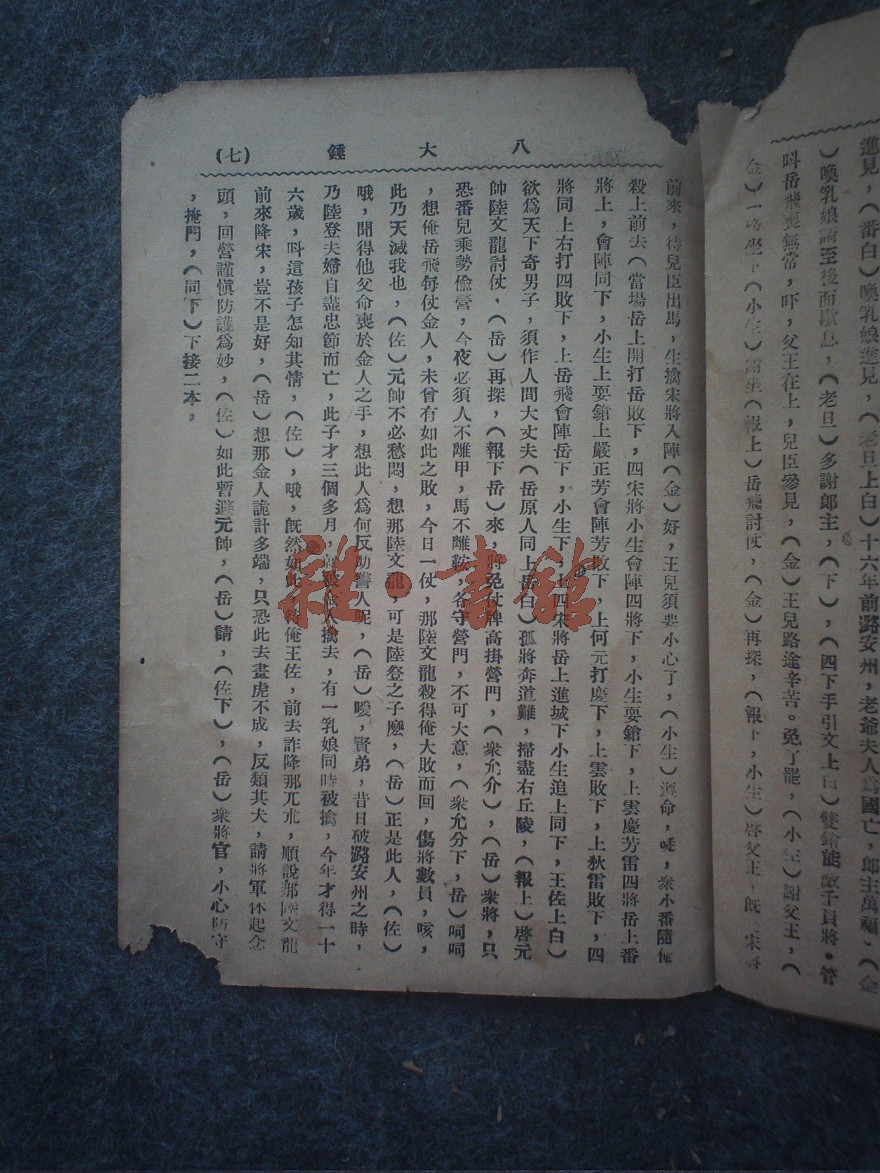 進見，（番白）喚乳娘進見，（老旦上白）十六年前潞安州，老爺夫人為國亡，郎主萬福，（金
）喚乳娘請至後面歇息，（老旦）多謝郎主，（下），（四下手引文上白）雙鎗能敵千員將。管
呌岳飛喪無常，吓，父王在上，兒臣參見，（金）王兒路途辛苦。免了罷，（小生）謝父王，（
金）一旁坐下（小生）謝坐（報上）岳飛討仗，（金）再探，（報下，小生）啓父王，既 宋將
八大錘
（七）
前來，待兒臣出馬，生擒宋將入陣（金）好，王兒須要小心了，（小生）遵命，唗，衆小番隨俺
殺上前去（當場岳上開打岳敗下，四宋將小生會陣四將下，小生耍鎗下，上雲慶芳雷四將岳上番
將上，會陣同下，小生上耍鎗上嚴正芳會陣芳敗下，上何元打慶下，上雲敗下，上狄雷敗下，四
將同上右打四敗下，上岳飛會陣岳下，小生下，上四宋將岳上進城下小生追上同下，王佐上白）
欲為天下奇男子，須作人間大丈夫（岳原人同上岳白）孤將奔道難，掃盡右丘陵，（報上）啓元
帥陸文龍討仗，（岳）再探，（報下岳）來，將免仗牌高掛營門，（衆允介），（岳）衆將，只
恐番兒乘勢偷營，今夜必須人不離甲，馬不離鞍，各守營門，不可大意，（衆允分下，岳）呵呵
，想俺岳飛每仗金人，未曾有如此之敗，今日一仗，那陸文龍殺得俺大敗而回，傷將數員，咳，
此乃天滅我也，（佐）元帥不必愁悶，想那陸文龍，可是陸登之子麽，（岳）正是此人，（佐）
哦，聞得他父命喪於金人之手，想此人為何反助讐人呢，（岳）噯，賢弟，昔日破潞安州之時，
乃陸登夫婦自盡忠節而亡，此子才三個多月，竟被金人擒去，有一乳娘同時被擒，今年才得一十
六歲，呌這孩子怎知其情，（佐），哦，既然如此，待俺王佐，前去詐降那兀朮，順說那陸文龍
前來降宋，豈不是好，（岳）想那金人詭計多端，只恐此去畫虎不成，反類其犬，請將軍休起念
頭，回營謹慎防護為妙，（佐）如此暫避元帥，（岳）請，（佐下），（岳）衆將官，小心防守
，掩門，（同下）下接二本，
雜·書館